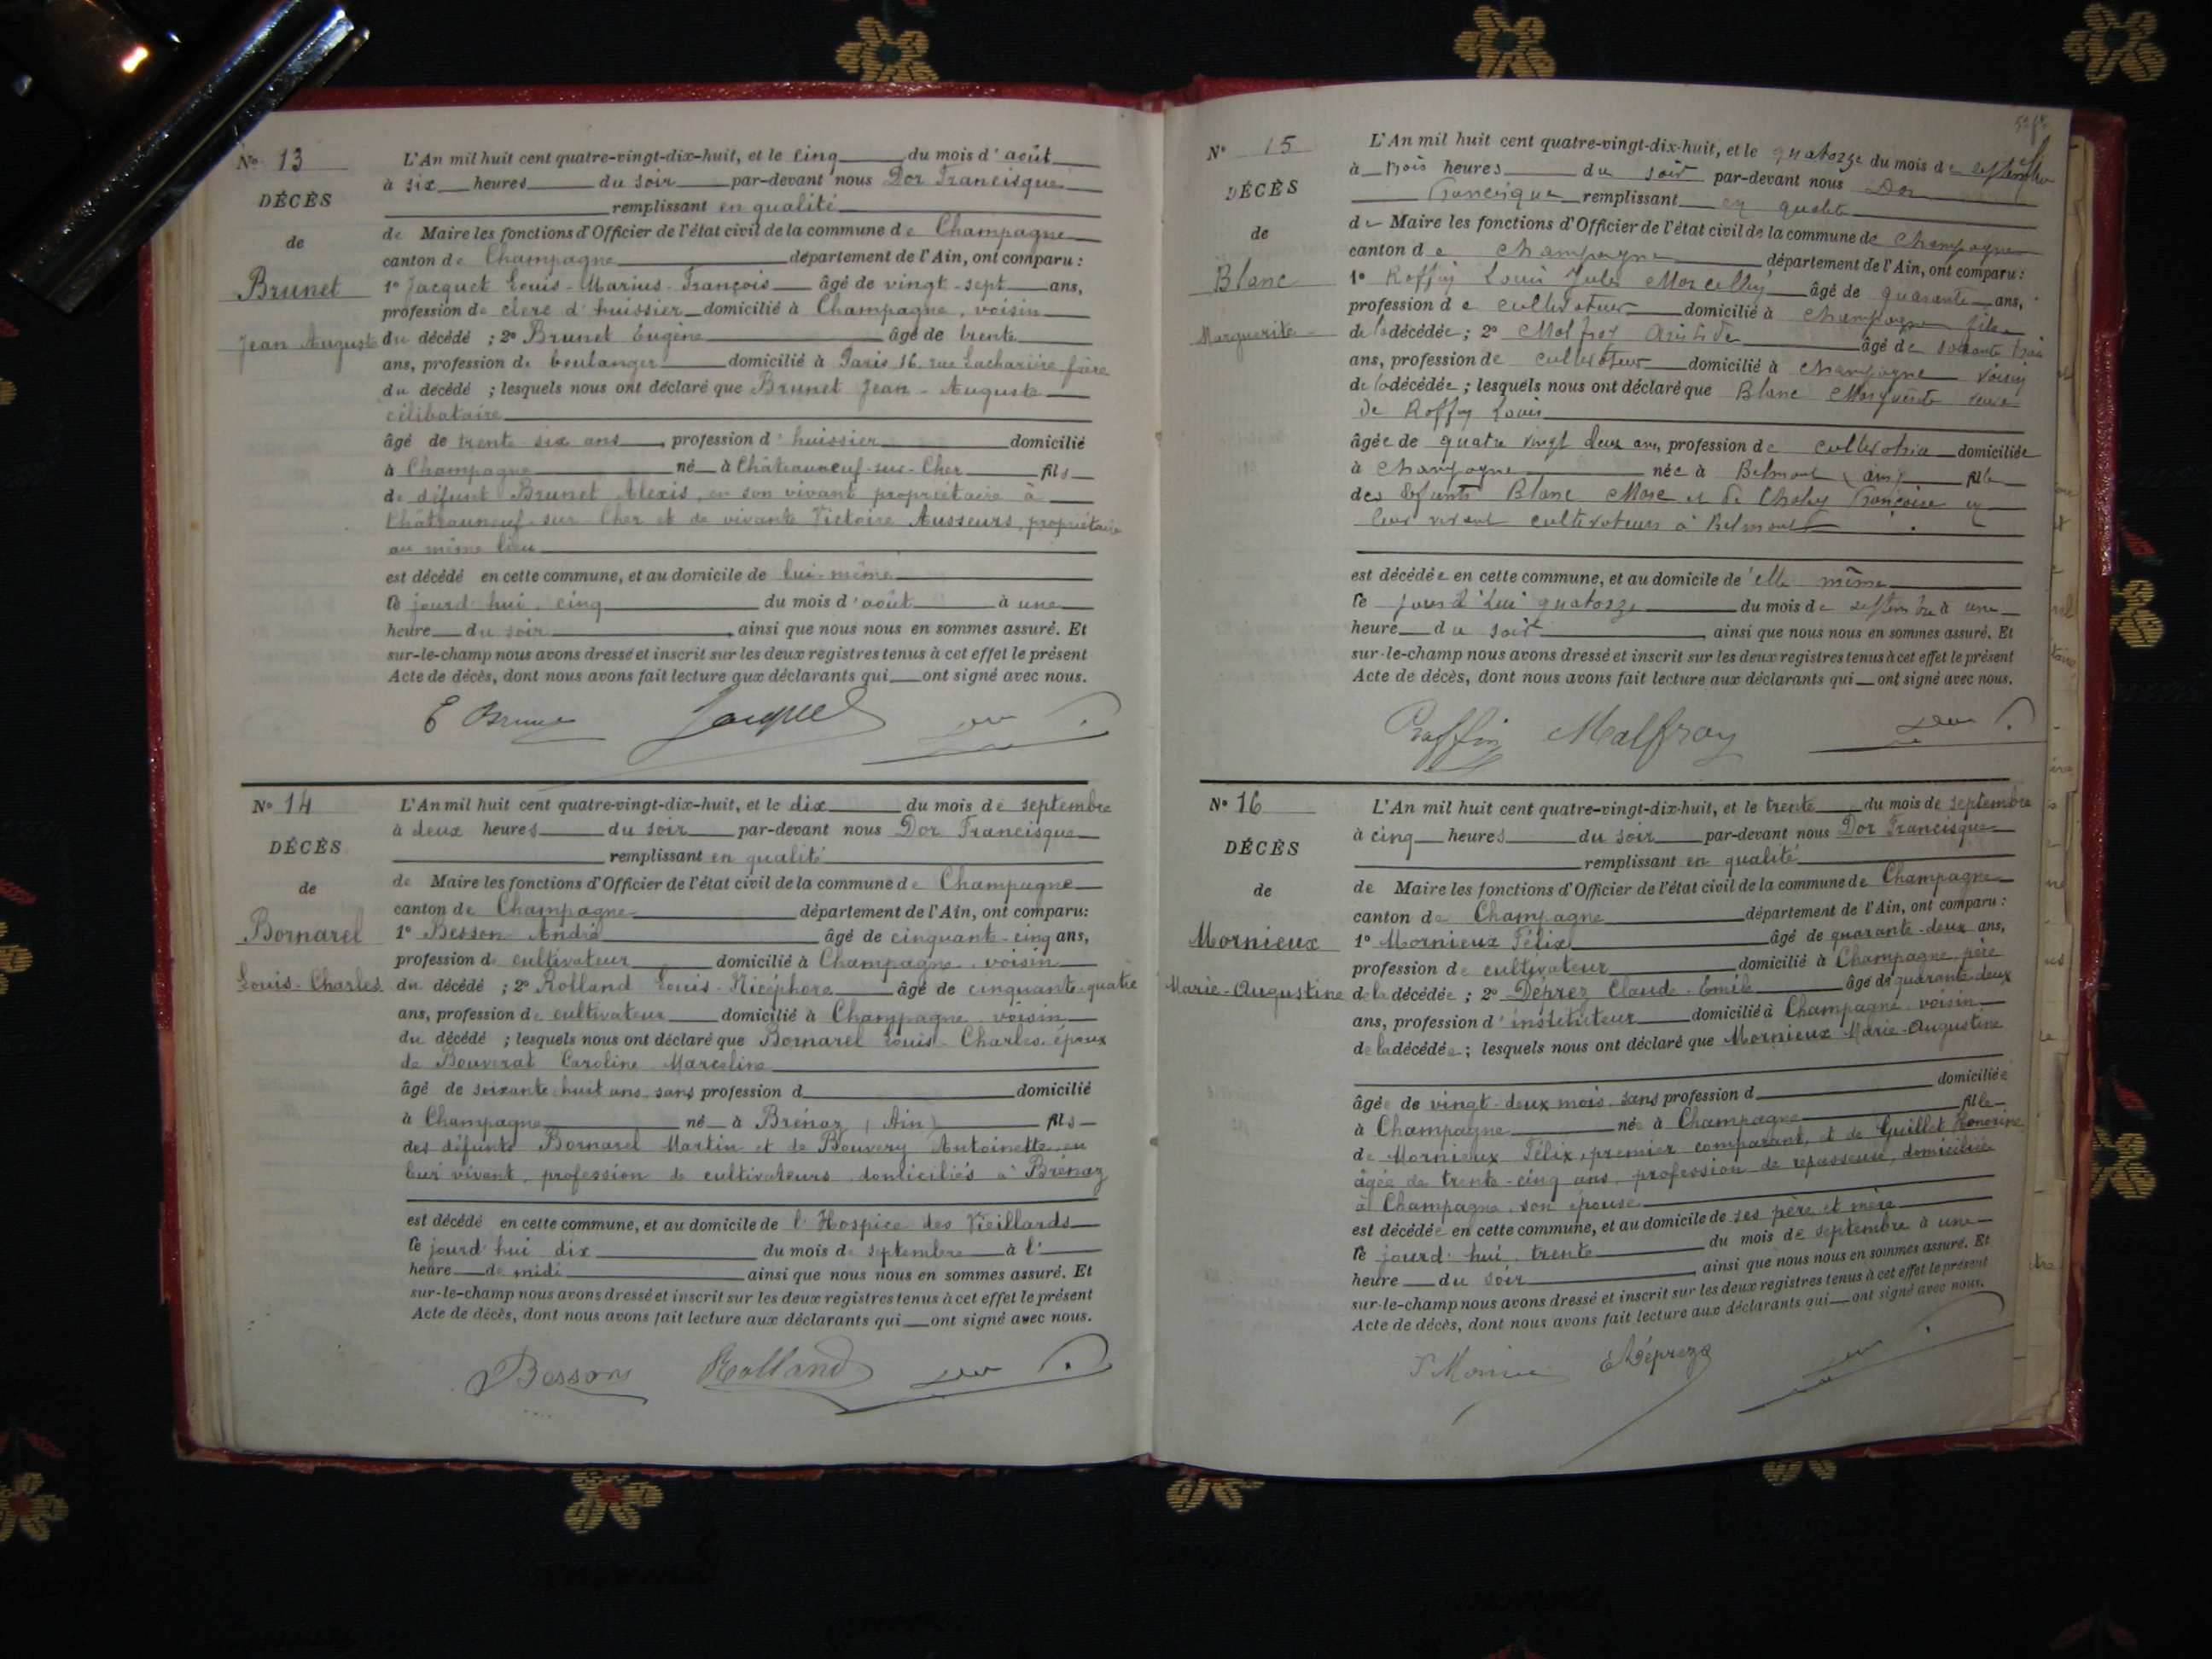 N° 13
DÉCÈS
de
Brunet
Jean Auguste
L'An mil huit cent quatre-vingt-dix-huit, et le cinq du mois d'août
à six heures du soir par-devant nous Dor Francisque
remplissant en qualité
de Maire les fonctions d'Officier de l'état civil de la commune de Champagne
canton de Champagne département de l'Ain, ont comparu :
1° Jacquet Louis-Marius-François âgé de vingt-sept ans,
profession de clerc d'huissier domicilié à Champagne, voisin
du décédé ; 2° Brunet Eugène âgé de trente
ans, profession de boulanger domicilié à Paris 16 rue Lacharière frère
du décédé ; lesquels nous ont déclaré que Brunet Jean-Auguste
célibataire
âgé de trente six ans, profession d'huissier domicilié
à Champagne né à Châteauneuf-sur-Cher fils
de défunt Brunet Alexis, en son vivant propriétaire à
Châteauneuf-sur-Cher et de vivante Victoire Ausseurs, propriétaire
au même lieu
est décédé en cette commune, et au domicile de lui-même
le jourd'hui, cinq du mois d'août à une
heure du soir, ainsi que nous nous en sommes assuré. Et
sur-le-champ nous avons dressé et inscrit sur les deux registres tenus à cet effet le présent
Acte de décès, dont nous avons fait lecture aux déclarants qui ont signé avec nous.
E Brunet Jacquet Dor
N° 14
DÉCÈS
de
Bornarel
Louis-Charles
L'An mil huit cent quatre-vingt-dix-huit, et le dix du mois de septembre
à deux heures du soir par-devant nous Dor Francisque
remplissant en qualité
de Maire les fonctions d'Officier de l'état civil de la commune de Champagne
canton de Champagne département de l'Ain, ont comparu:
1° Besson André âgé de cinquant-cinq ans,
profession de cultivateur domicilié à Champagne, voisin
du décédé ; 2° Rolland Louis-Nicéphore âgé de cinquante-quatre
ans, profession de cultivateur domicilié à Champagne, voisin
du décédé ; lesquels nous ont déclaré que Bornarel Louis-Charles, époux
de Bouverat Caroline Marceline
âgé de soixante huit ans sans profession d domicilié
à Champagne né à Brénaz (Ain) fils
des défunts Bornarel Martin et de Bouvery Antoinette en
leur vivent, profession de cultivateurs domiciliés à Brénaz
est décédé en cette commune, et au domicile de l'Hospice des Vieillards
le jourd'hui dix du mois de septembre à l'
heure de midi ainsi que nous nous en sommes assuré. Et
sur-le-champ nous avons dressé et inscrit sur les deux registres tenus à cet effet le présent
Acte de décès, dont nous avons fait lecture aux déclarants qui ont signé avec nous.
Besson Rolland Dor
N° 15
DÉCÈS
de
Blanc
Marguerite
L'An mil huit cent quatre-vingt-dix-huit, et le quatorze du mois de septembre
à trois heures du soir par-devant nous Dor
Francisque remplissant en qualité
de Maire les fonctions d'Officier de l'état civil de la commune de Champagne
canton de Champagne département de l'Ain, ont comparu :
1° Roffin Louis Jules Marcelly âgé de quarante ans,
profession de cultivateur domicilié à Champagne fils
de la décédée ; 2° Malfroy Aristide âgé de soixante trois
ans, profession de cultivateur domicilié à Champagne voisin
de la décédée ; lesquels nous ont déclaré que Blanc Marguerite veuve
de Roffin Louis
âgée de quatre vingt deux ans, profession de cultivatrice domiciliée
à Champagne née à Belmont (Ain) fille
des défunts Blanc Marc et de Choley Françoise en
leur vivant cultivateurs à Belmont
est décédée en cette commune, et au domicile de elle même
le jourd'hui quatorze du mois de septembre à une
heure du soir, ainsi que nous nous en sommes assuré. Et
sur-le-champ nous avons dressé et inscrit sur les deux registres tenus à cet effet le présent
Acte de décès, dont nous avons fait lecture aux déclarants qui ont signé avec nous.
Roffin Malfroy Dor
N° 16
DÉCÈS
de
Mornieux
Marie-Augustine
L'An mil huit cent quatre-vingt-dix-huit, et le trente du mois de septembre
à cinq heures du soir par-devant nous Dor Francisque
remplissant en qualité
de Maire les fonctions d'Officier de l'état civil de la commune de Champagne
canton de Champagne département de l'Ain, ont comparu :
1° Mornieux Félix âgé de quarante-deux ans,
profession de cultivateur domicilié à Champagne, père
de la décédée ; 2° Déprez Claude-Emile âgé de quarante-deux
ans, profession d'instituteur domicilié à Champagne, voisin
de la décédée ; lesquels nous ont déclaré que Mornieux Marie-Augustine
âgée de vingt-deux mois sans profession d domiciliée
à Champagne née à Champagne fille
de Mornieux Félix, premier comparant, et de Guillet Honorine
âgée de trente-cinq ans, profession de repasseuse, domiciliée
à Champagne, son épouse
est décédée en cette commune, et au domicile de ses père et mère
le jourd'hui, trente du mois de septembre à une
heure du soir, ainsi que nous nous en sommes assuré. Et
sur-le-champ nous avons dressé et inscrit sur les deux registres tenus à cet effet le présent
Acte de décès, dont nous avons fait lecture aux déclarants qui ont signé avec nous.
Déprez Dor